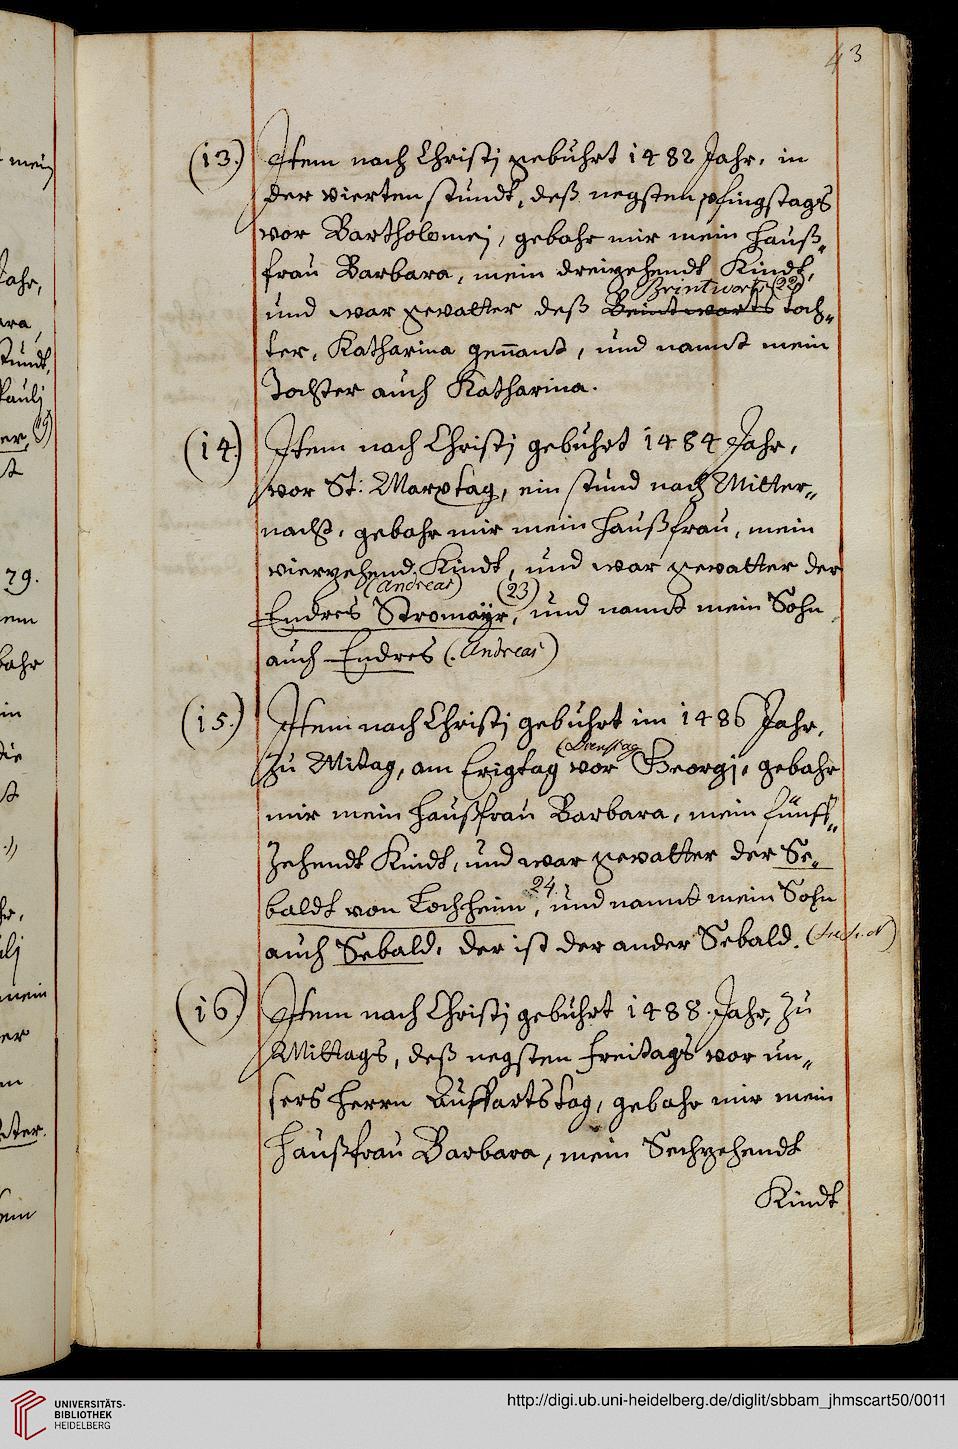 43
(13.) Item nach Christj gebuhrt 1482 Jahr, in
der vierten stundt, deß negsten pfingstags
vor Bartholomej, gebahr mir mein Hauß„
frau Barbara, mein dreizehendt Kindt,
Brintwarts (22)
und war gevatter deß Beintwarts toch„
ter, Katharina genant, und nannt mein
Tochter auch Katharina.
(14.) Item nach Christj gebuhrt 1484 Jahr,
vor St: Marx tag, ein stund nach Mitter„
nacht, gebahr mir mein Haußfrau, mein
vierzehend. Kindt, und war gevatter der
(Andreas) (23)
Endres Stromayr, und nannt mein Sohn
auch Endres (Andreas)
(15.) Item nach Christj gebuhrt im 1486 Jahr,
(Dienstag
zu Mitag, am Erigtag vor Georgj, gebahr
mir mein Haußfrau Barbara, mein fünff„
zehendt Kindt, und war gevatter der Se„
24.
baldt von Lochheim, und nannt mein Sohn
auch Sebald, der ist der ander Sebald.
(16) Item nach Christj gebuhrt 1488. Jahr, zu
Mittags, deß negsten freitags vor un„
sers Herrn Auffartstag, gebahr mir mein
Haußfrau Barbara, mein Sechzehendt
Kindt
mein
Jahr,
ara,
stundt,
Paulj
er, 19)
st
79.
nem
bahr
in
die
st
hr,
ulj
mein
er
en
eter.
ein
UNIVERSITÄTS-
BIBLIOTHEK
HEIDELBERG
http://digi.ub.uni-heidelberg.de/diglit/sbbam_jhmscart50/0011